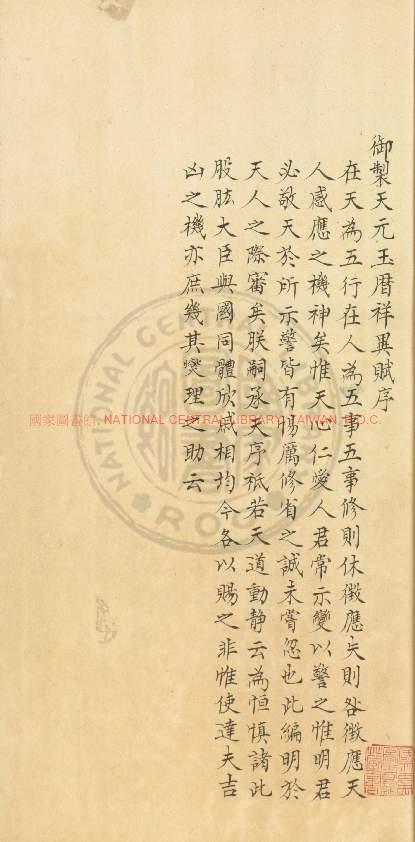 御製天元玉曆祥異賦序
在天為五行在人為五事五事修則休徵應失則咎徵應天
人感應之機神矣惟天心仁愛人君常示變以警之惟明君
必敬天於所示警皆有惕厲修省之誠未嘗忽也此編明於
天人之際審矣朕嗣承天序祗若天道動靜云為恒慎諸此
股肱大臣與國同體欣戚相均今各以賜之非惟使達夫吉
凶之機亦庶幾其燮理之助云
國家圖書館, NATIONAL CENTRAL LIBRARY, TAIWAN, R.O.C.
NATIONAL CENTRAL LIBRARY
ROC